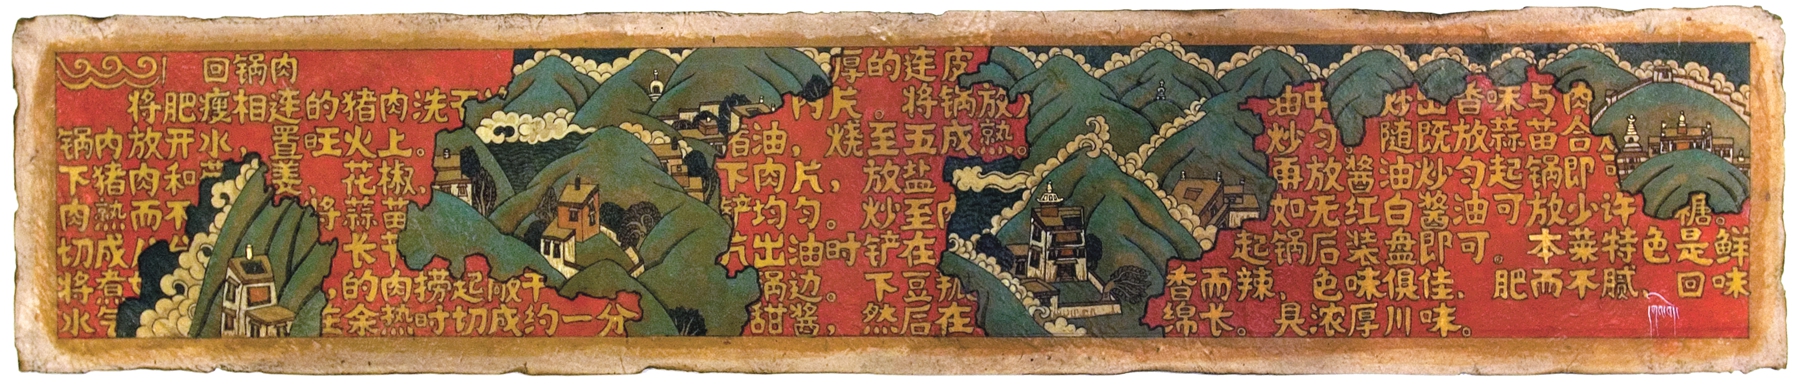 回锅肉
将肥瘦相连的猪肉洗
锅内放开水，置旺火上。
下猪肉和 姜、花椒，
肉熟而不 将蒜苗
切成 长
将煮 的肉捞起敞干
水气 余热时切成约一分
厚的连皮
肉片。将锅放
猪油，烧至五成熟。
下肉片，放盐
铲均匀。炒至肉
出油时铲在
锅边。下豆
甜酱，然后在
油中 炒出香味与肉
炒匀。随既放蒜苗合
再放酱油炒匀起锅即
如无红白酱油可放少许 糖。
起锅后装盘即可。本菜特色是鲜
香而辣，色味俱佳，肥而不腻，回味
绵长。具浓厚川味。